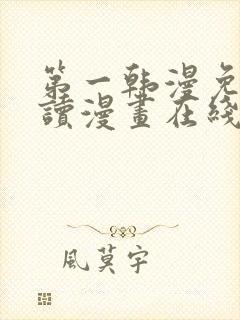 第一韩漫免
讀漫畫在綫
風莫宇